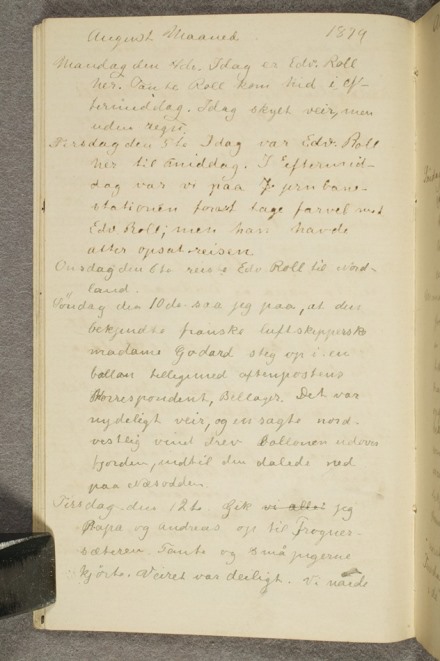 August Maaned. 1879
Mandag den 4de. Idag er Edv. Roll
her. Tante Roll kom hid i Ef-
termiddag. Idag skyet veir, men
uden regn.
Tirsdag den 5te Idag var Edv. Roll
her til middag. I Eftermid-
dag var vi paa Jernbane-
stationen forat tage farvel med
Edv Roll, men han havde
atter opsat reisen
Onsdag den 6te reiste Edv Roll til Nord-
land.
Søndag den 10de saa jeg paa, at den
bekjendte franske luftskipperske
madame Godard steg op i en
ballon tilligemed aftenpostens
Korrespondent, Bellager. Det var
nydeligt veir, og en sagte nord-
vestlig vind drev Ballonen udover
fjorden, indtil den dalede ned
paa Næsodden.
Tirsdag den 12te. Gik vi alle jeg
Papa og Andreas op til Frogner-
sæteren Tante og smaapigerne
kjørte. Veiret var deiligt. Vi